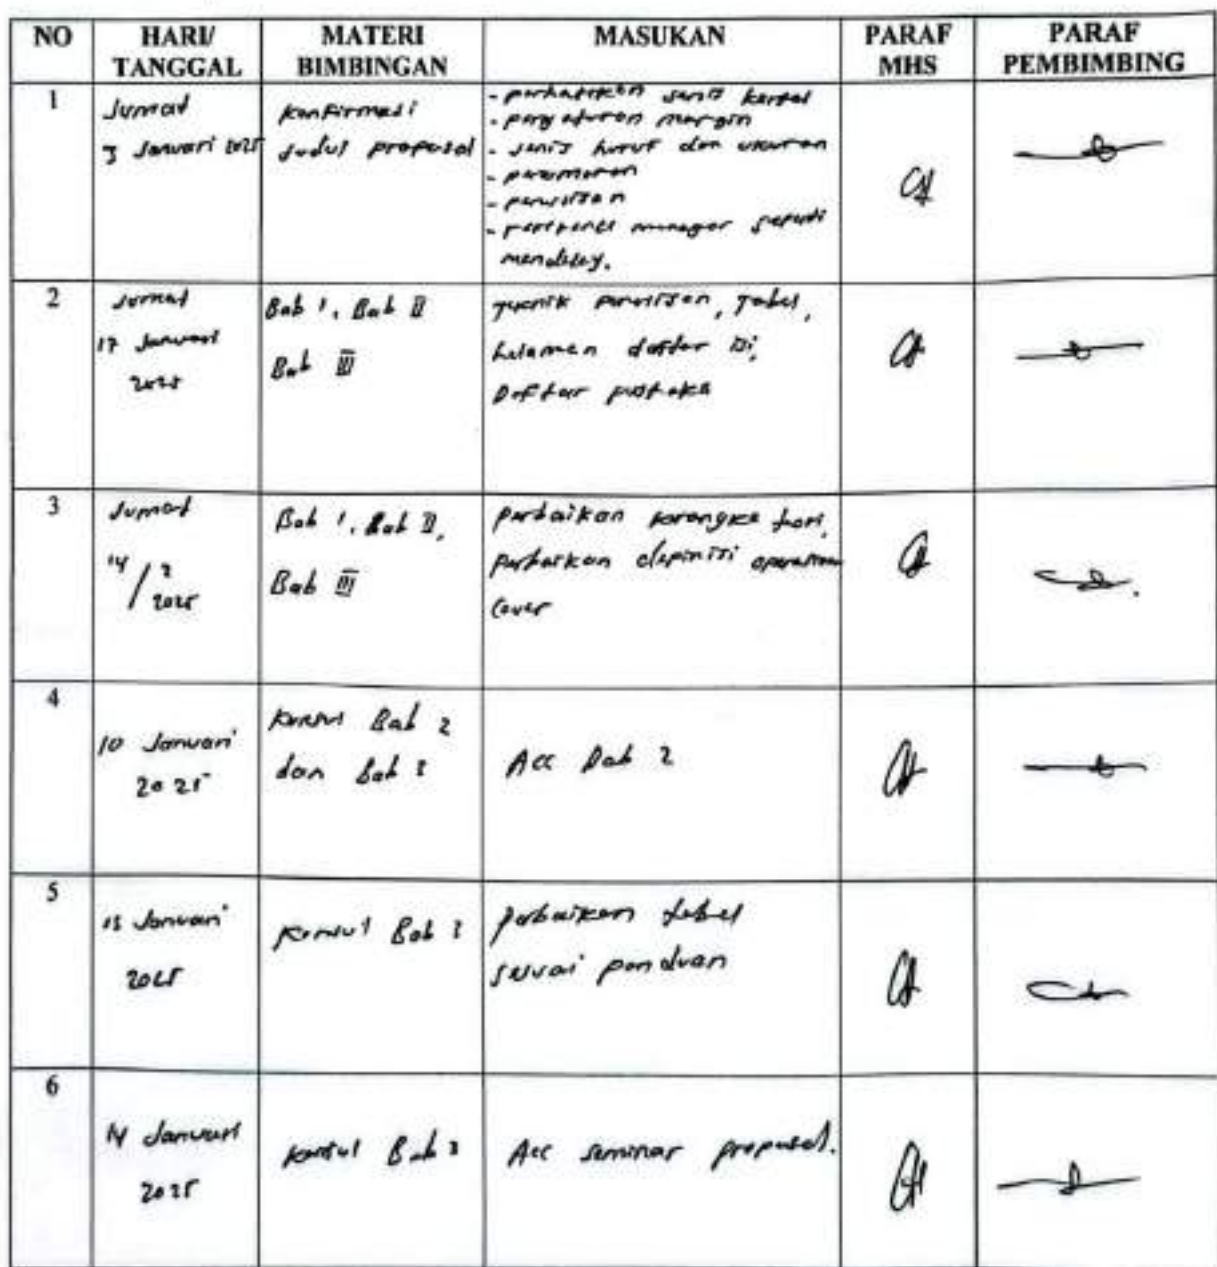 NO HARI/ TANGGAL MATERI BIMBINGAN MASUKAN PARAF MHS PARAF PEMBIMBING
1
Jumat
3 Januari 2025
Konfirmasi
Judul proposal
- perhatikan jenis kertas
- pengaturan margin
- jenis huruf dan ukuran
- penomoran
- penulisan
- manager seperti
mendeley.
2
Jumat
17 Januari
2025
Bab 1, Bab II
Bab III
penulisan, Tabel,
halaman daftar isi,
Daftar pustaka
3
Jumat
14/2
2025
Bab 1, Bab II,
Bab III
perbaikan teori,
perbaikan depinisi
Cover
4
10 Januari
2025
Konsul Bab 2
dan Bab 3
Acc Bab 2
5
Januari
2025
Konsul Bab 3
perbaikan tabel
sesuai panduan
6
14 Januari
2025
Konsul Bab 3
Acc seminar proposal.